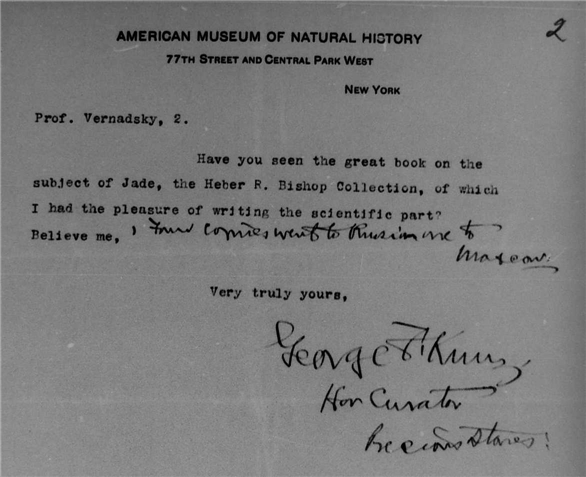 2
AMERICAN MUSEUM OF NATURAL HISTORY
77TH STREET AND CENTRAL PARK WEST
NEW YORK
Prof. Vernadsky, 2.
Have you seen the great book on the
subject of Jade, the Heber R. Bishop Collection, of which
I had the pleasure of writing the scientific part?
Believe me, Four copies went to Russia one to
Moscow.
Very truly yours,
George F. Kunz
Hon Curator
Precious Stones.